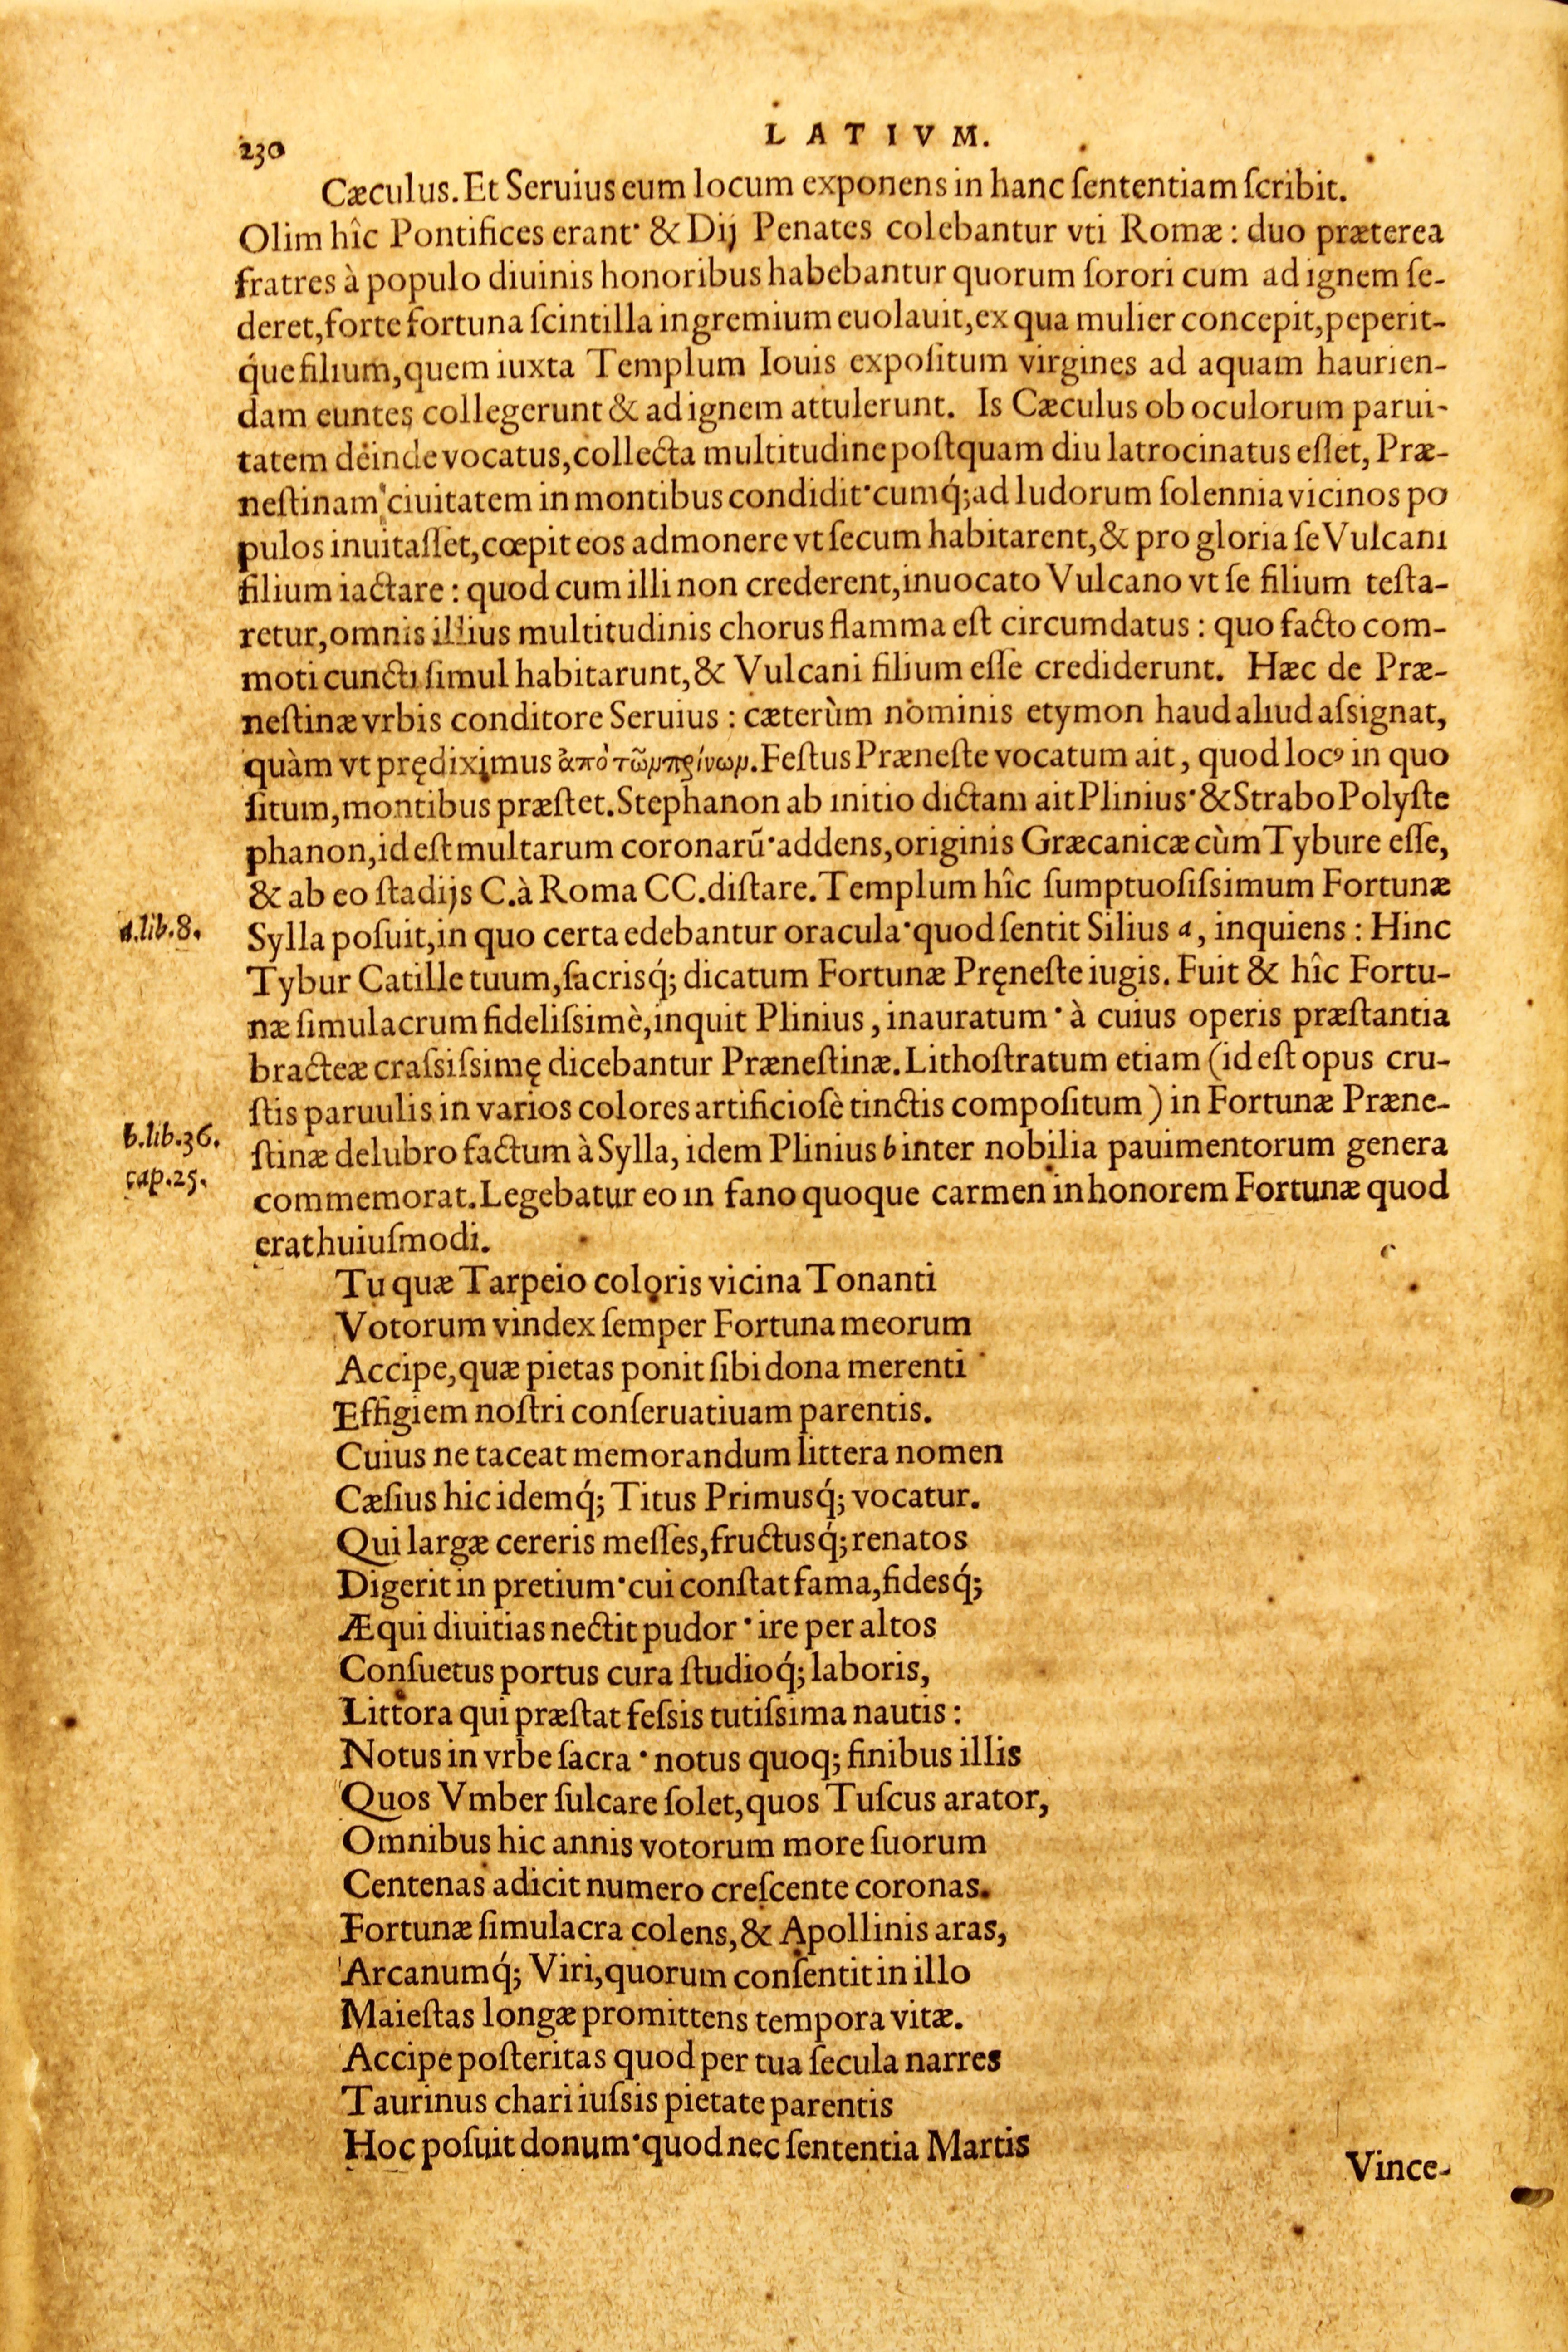 230
LATIVM.
Cæculus. Et Seruius eum locum exponens in hanc ſententiam ſcribit.
Olim hîc Pontifices erant· & Dij Penates colebantur vti Romæ : duo præterea
fratres à populo diuinis honoribus habebantur quorum ſorori cum ad ignem ſe-
deret, forte fortuna ſcintilla in gremium euolauit, ex qua mulier concepit, peperit-
q́ue filium, quem iuxta Templum Iouis expoſitum virgines ad aquam haurien-
dam euntes collegerunt & ad ignem attulerunt. Is Cæculus ob oculorum parui-
tatem deinde vocatus, collecta multitudine poſtquam diu latrocinatus eſſet, Præ-
neſtinam ciuitatem in montibus condidit· cumq́; ad ludorum ſolennia vicinos po
pulos inuitaſſet, cœpit eos admonere vt ſecum habitarent, & pro gloria ſe Vulcani
filium iactare : quod cum illi non crederent, inuocato Vulcano vt ſe filium teſta-
retur, omnis illius multitudinis chorus flamma eſt circumdatus : quo facto com-
moti cuncti ſimul habitarunt, & Vulcani filium eſſe crediderunt. Hæc de Præ-
neſtinæ vrbis conditore Seruius : cæterùm nominis etymon haud aliud aſsignat,
quàm vt prędiximus ἀπὸ τῶμ πρίνωμ. Feſtus Præneſte vocatum ait, quod locꝰ in quo
ſitum, montibus præſtet. Stephanon ab initio dictam ait Plinius· & Strabo Polyſte
phanon, id eſt multarum coronarū· addens, originis Græcanicæ cùm Tybure eſſe,
& ab eo ſtadijs C. à Roma CC. diſtare. Templum hîc ſumptuoſiſsimum Fortunæ
a. lib. 8.
Sylla poſuit, in quo certa edebantur oracula· quod ſentit Silius a, inquiens : Hinc
Tybur Catille tuum, ſacrisq́; dicatum Fortunæ Pręneſte iugis. Fuit & hîc Fortu-
næ ſimulacrum fideliſsimè, inquit Plinius, inauratum· à cuius operis præſtantia
bracteæ craſsiſsimę dicebantur Præneſtinæ. Lithoſtratum etiam (id eſt opus cru-
ſtis paruulis in varios colores artificioſè tinctis compoſitum) in Fortunæ Præne-
b. lib. 36.
cap. 25.
ſtinæ delubro factum à Sylla, idem Plinius b inter nobilia pauimentorum genera
commemorat. Legebatur eo in fano quoque carmen in honorem Fortunæ quod
erat huiuſmodi.
Tu quæ Tarpeio coloris vicina Tonanti
Votorum vindex ſemper Fortuna meorum
Accipe, quæ pietas ponit ſibi dona merenti
Effigiem noſtri conſeruatiuam parentis.
Cuius ne taceat memorandum littera nomen
Cæſius hic idemq́; Titus Primusq́; vocatur.
Qui largæ cereris meſſes, fructusq́; renatos
Digerit in pretium· cui conſtat fama, fidesq́;
Æqui diuitias nectit pudor· ire per altos
Conſuetus portus cura ſtudioq́; laboris,
Littora qui præſtat feſsis tutiſsima nautis :
Notus in vrbe ſacra· notus quoq; finibus illis
Quos Vmber ſulcare ſolet, quos Tuſcus arator,
Omnibus hic annis votorum more ſuorum
Centenas adicit numero creſcente coronas.
Fortunæ ſimulacra colens, & Apollinis aras,
Arcanumq́; Viri, quorum conſentit in illo
Maieſtas longæ promittens tempora vitæ.
Accipe poſteritas quod per tua ſecula narres
Taurinus chari iuſsis pietate parentis
Hoc poſuit donum· quod nec ſententia Martis
Vince-